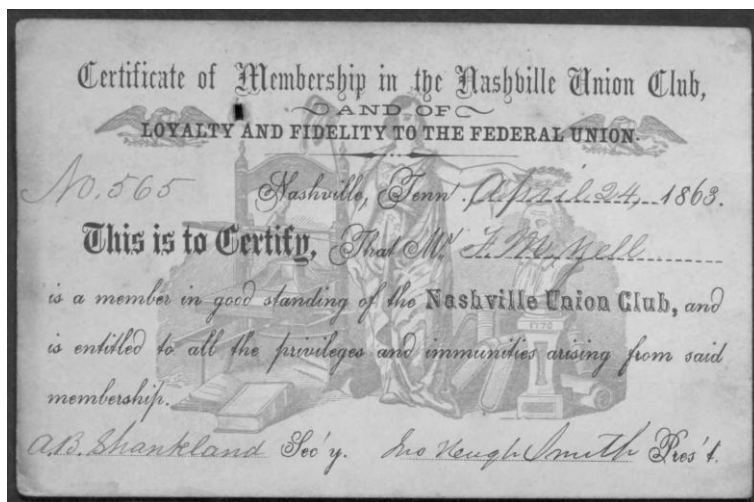 Certificate of Membership in the Nashville Union Club,
AND OF
LOYALTY AND FIDELITY TO THE FEDERAL UNION.
No. 565 Nashville, Tenn. April 24, 1863.
This is to Certify, That Mr. F. M. Yell
is a member in good standing of the Nashville Union Club, and
is entitled to all the privileges and immunities arising from said
membership.
1776
A.B. Shankland Sec'y. Jno Heugh Smith Pres't.